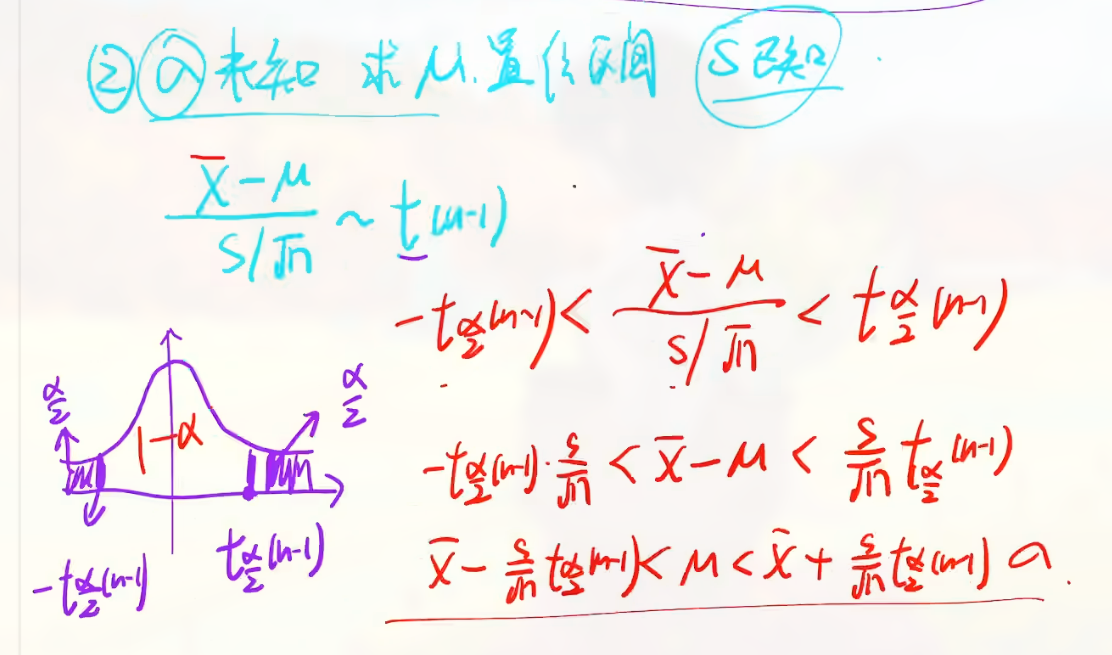 ② σ未知 求μ置信区间 S已知
(X̄-μ)/(S/√n) ~ t(n-1)
-t_{α/2}(n-1) < (X̄-μ)/(S/√n) < t_{α/2}(n-1)
α/2 1-α α/2
-t_{α/2}(n-1) t_{α/2}(n-1)
-t_{α/2}(n-1)·S/√n < X̄-μ < S/√n t_{α/2}(n-1)
X̄-S/√n t_{α/2}(n-1) < μ < X̄+S/√n t_{α/2}(n-1)